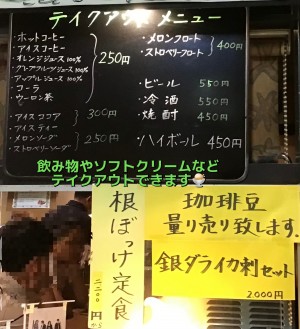 テイクアウトメニュー
・ホットコーヒー
・アイスコーヒー
・オレンジジュース 100%
・グレープフルーツジュース 100%
・アップルジュース 100%
・コーラ
・ウーロン茶
250円
・アイスココア
・アイスティー
300円
・メロンソーダ
・ストロベリーソーダ
250円
・メロンフロート
・ストロベリーフロート
400円
・ビール 550円
・冷酒 550円
・焼酎 450円
・ハイボール 450円
飲み物やソフトクリームなど
テイクアウトできます🍨
根ぼっけ定食
珈琲豆
量り売り致します.
銀ダライカ刺セット
2000円